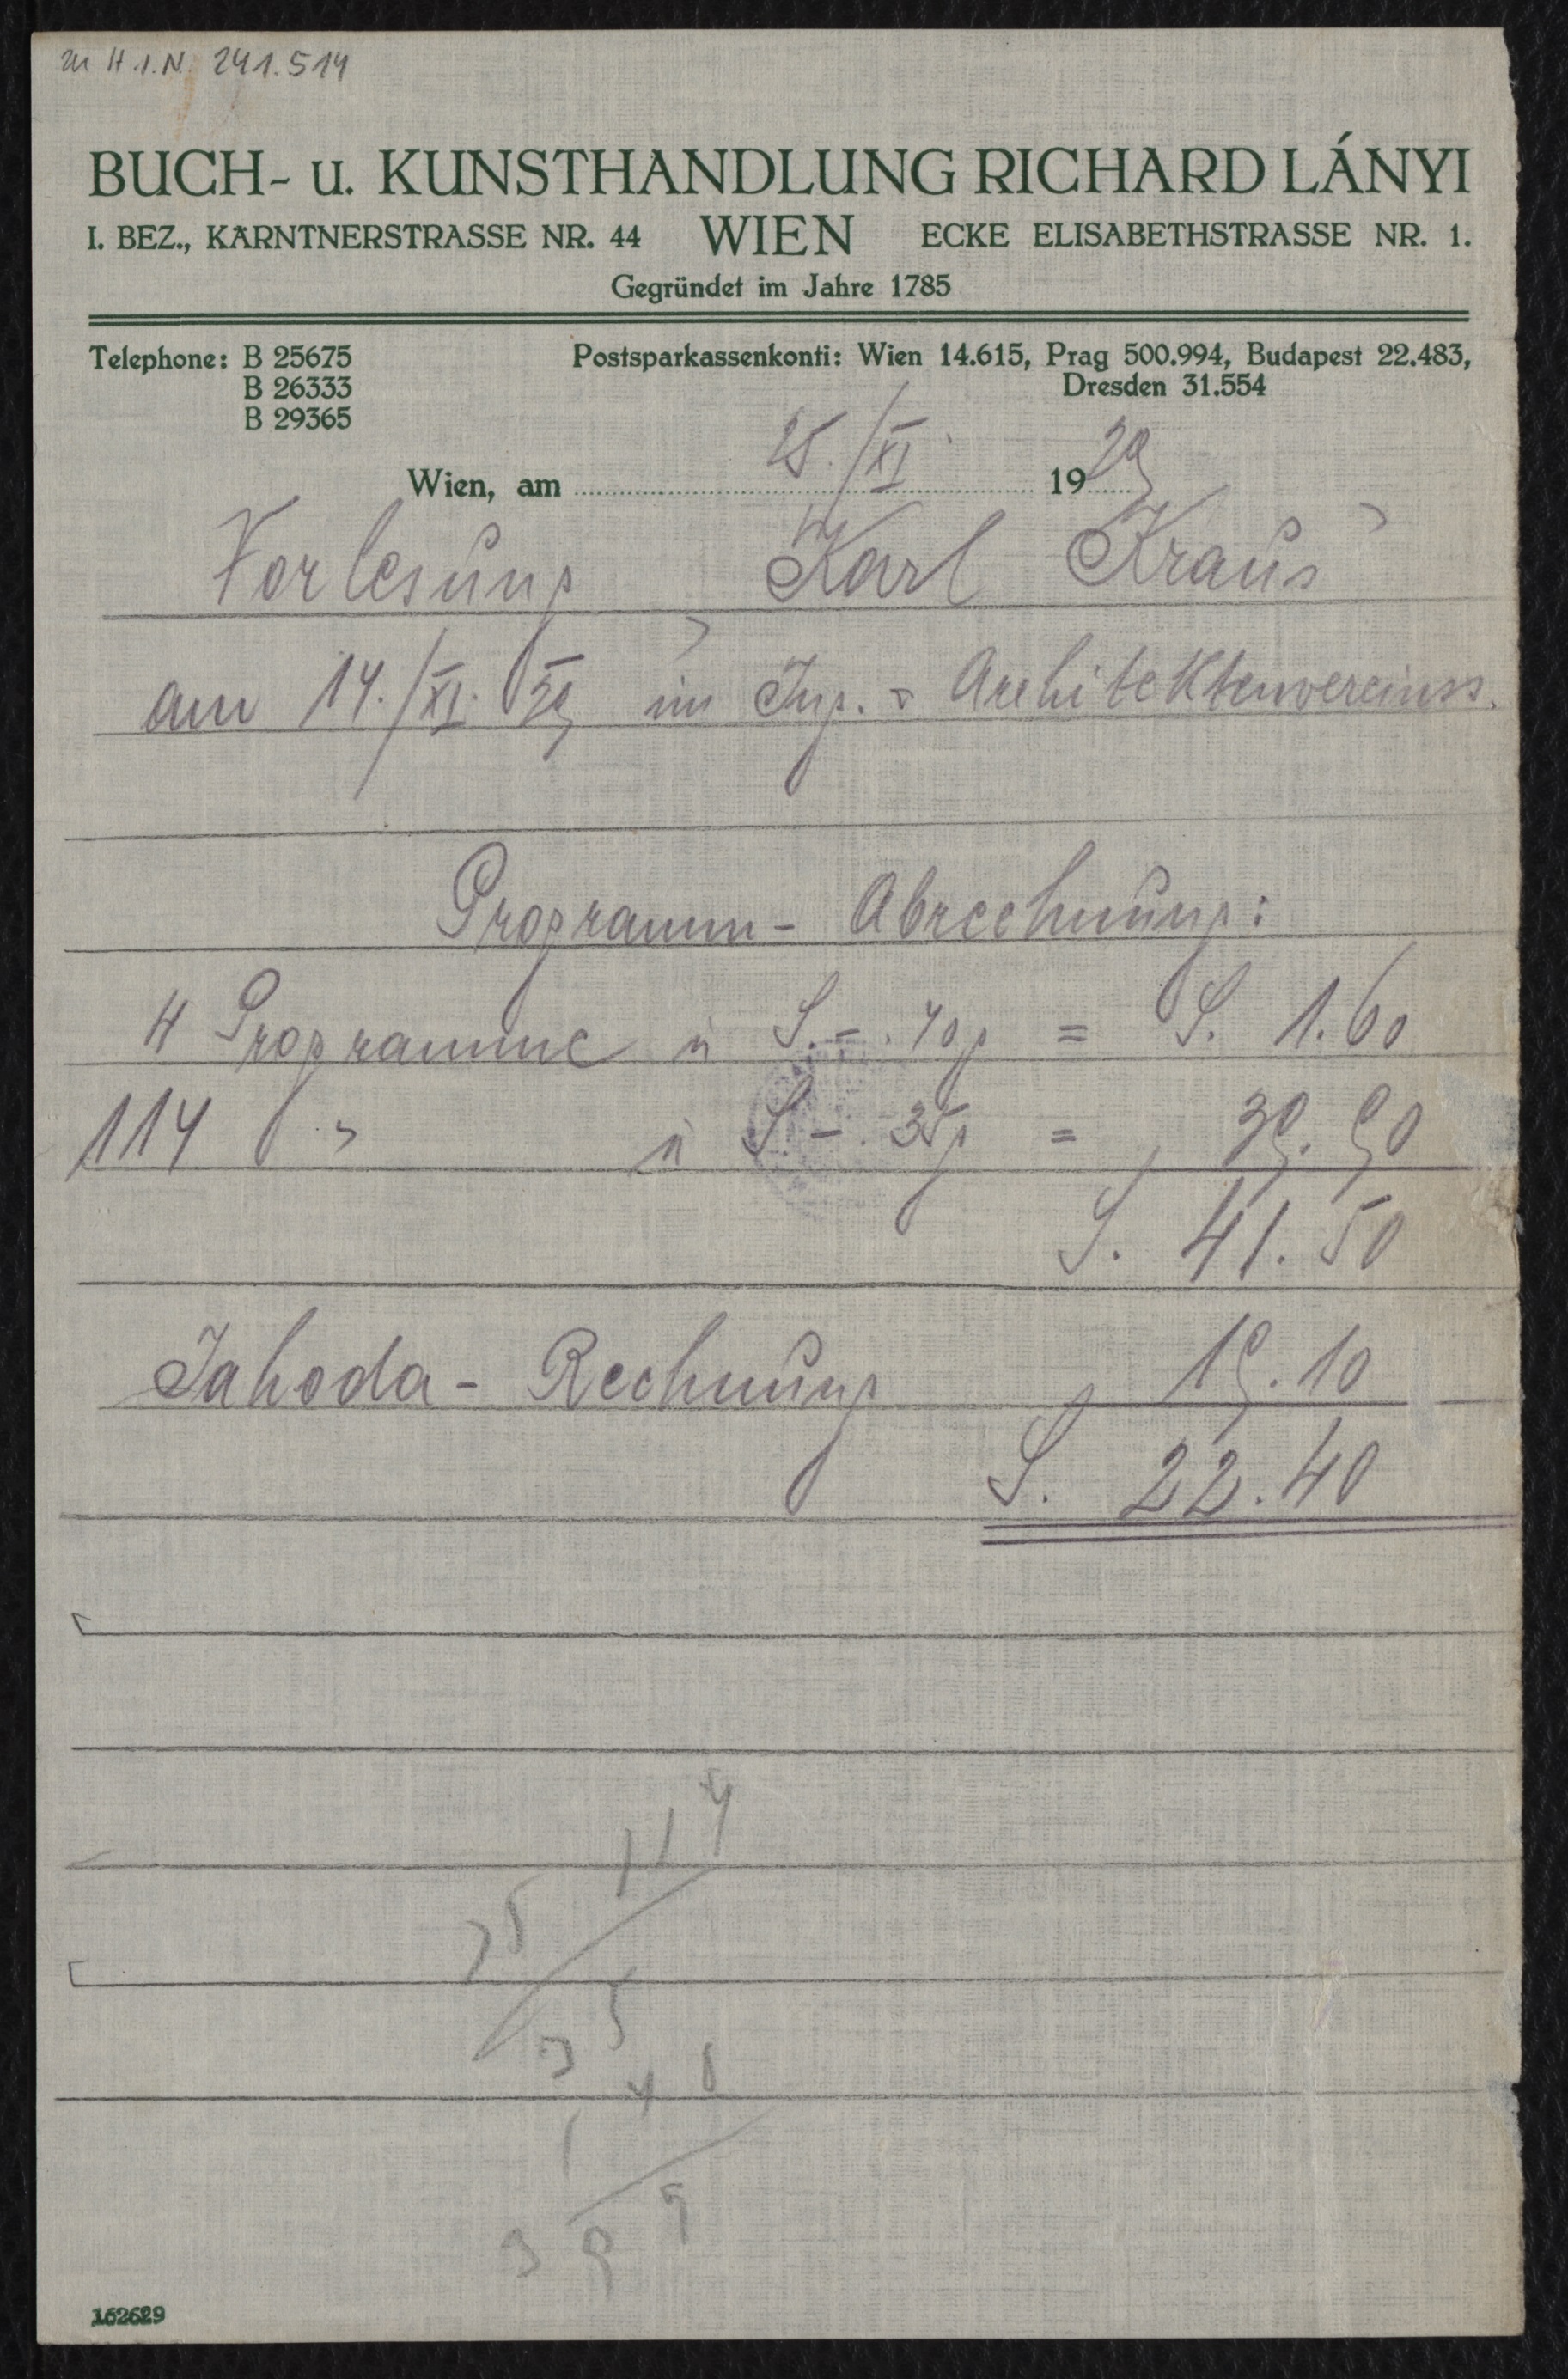 zu H.I.N. 241.514
BUCH- u. KUNSTHANDLUNG RICHARD LÁNYI
I. BEZ., KÄRNTNERSTRASSE NR. 44 WIEN ECKE ELISABETHSTRASSE NR. 1.
Gegründet im Jahre 1785
Telephone: B 25675
B 26333
B 29365
Postsparkassenkonti: Wien 14.615, Prag 500.994, Budapest 22.483,
Dresden 31.554
Wien, am 25./XI. 1929
Vorlesung Karl Kraus
am 14./XI. 29 im Ing. & Architektenvereinss.
Programm- Abrechnung:
4 Programme à S. -.40 g = S. 1.60
114 " à S -.35 g = " 39.90
S. 41.50
Jahoda- Rechnung " 19.10
S. 22.40
114
35
3 5
1 4 0
3 9 9
162629